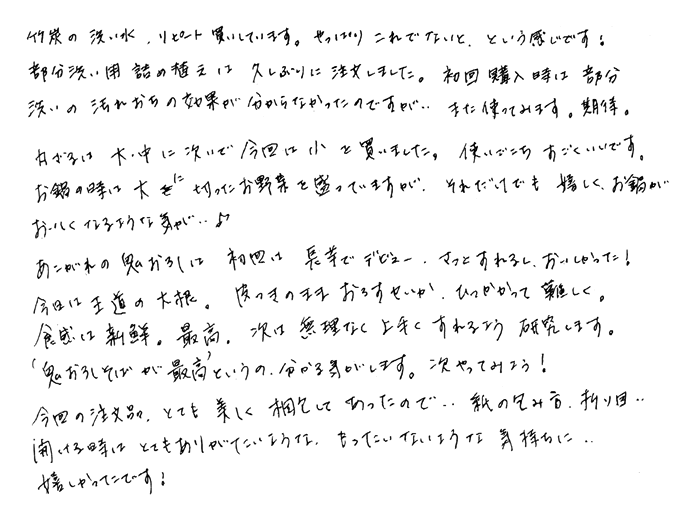 竹炭の洗い水、リピート買いしています。やっぱりこれでないと、という感じです!
部分洗い用詰め植えは久しぶりに注文しました。初回購入時は部分
洗いの汚れおちの効果が分からなかったのですが‥また使ってみます。期待。
丸ざるは大・中に次いで今回は小を買いました。使いごこちすごくいいです。
お鍋の時は大に切ったお野菜を盛っていますが、それだけでも嬉しく、お鍋が
おいしくなるような気が‥♪
あこがれの鬼おろしは初回は長芋でデビュー。さっとすれるし、おいしかった!
今日は王道の大根。皮つきのままおろすせいか、ひっかかって難しく。
食感は新鮮。最高。次は無理なく上手くすれるよう研究します。
「鬼おろしそばが最高」というの、分かる気がします。次やってみよう!
今回の注文品、とても美しく梱包してあったので‥紙の包み方、折り目‥
開ける時はとてもありがたいような、もったいないような気持ちに‥
嬉しかったです!